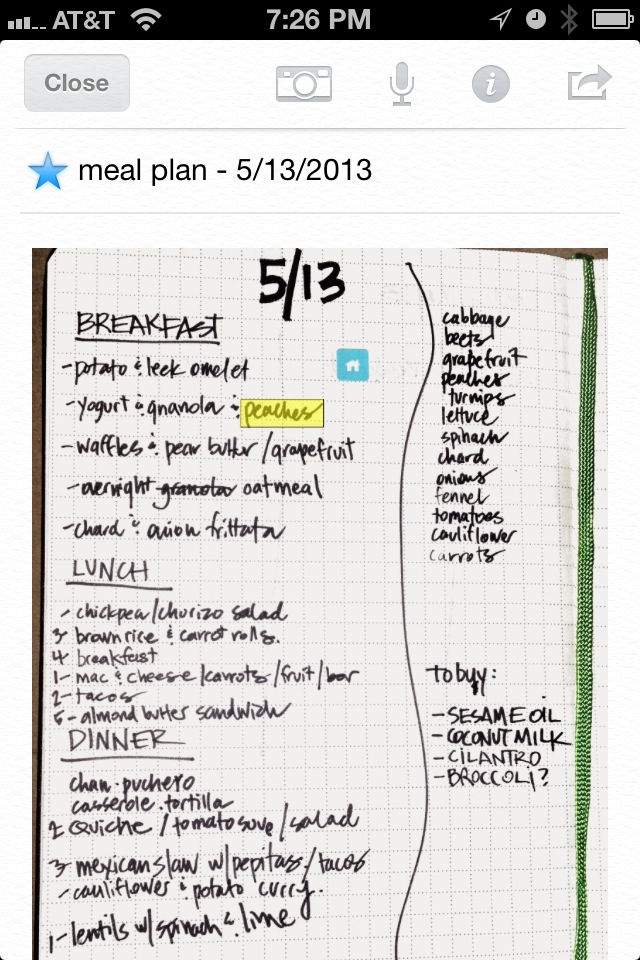 AT&T 7:26 PM
Close
meal plan - 5/13/2013
5/13
BREAKFAST
- potato & leek omelet
- yogurt & gnanola & peaches
- waffles & pear butter / grapefruit
- overnight granola oatmeal
- chard & onion frittata
LUNCH
- chickpea/chorizo salad
3- brown rice & carrot rolls.
4- breakfast
1- mac & cheese / carrots / fruit / bar
2- tacos
5- almond butter sandwich
DINNER
puchero
casserole tortilla
2 Quiche / tomato / salad
3- mexican slaw w/ pepitas / tacos
- cauliflower & potato curry.
1- lentils w/ spinach & lime
cabbage
beets
grapefruit
peaches
turnips
lettuce
spinach
chard
onions
fennel
tomatoes
cauliflower
carrots
To buy:
- SESAME OIL
- COCONUT MILK
- CILANTRO
- BROCCOLI?